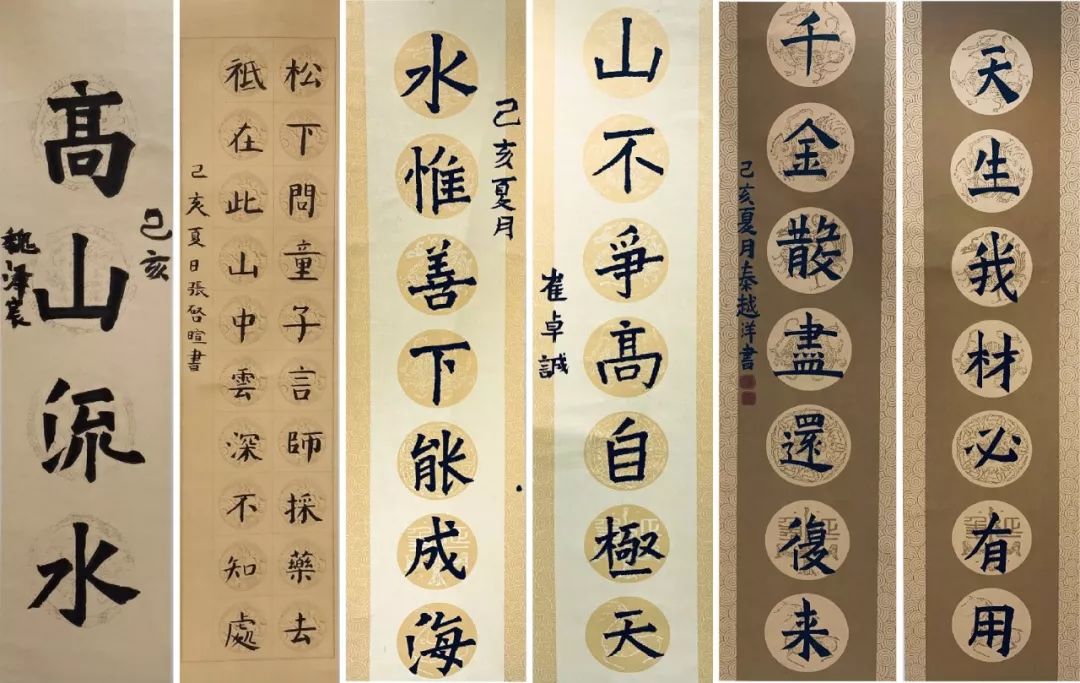 天生我材必有用
千金散盡還復来
己亥夏月秦越洋書
山不爭高自極天
崔卓誠
水惟善下能成海
己亥夏月
松下問童子言師採藥去
祇在此山中雲深不知處
己亥夏日張啓暄書
高山流水
己亥
魏澤宸